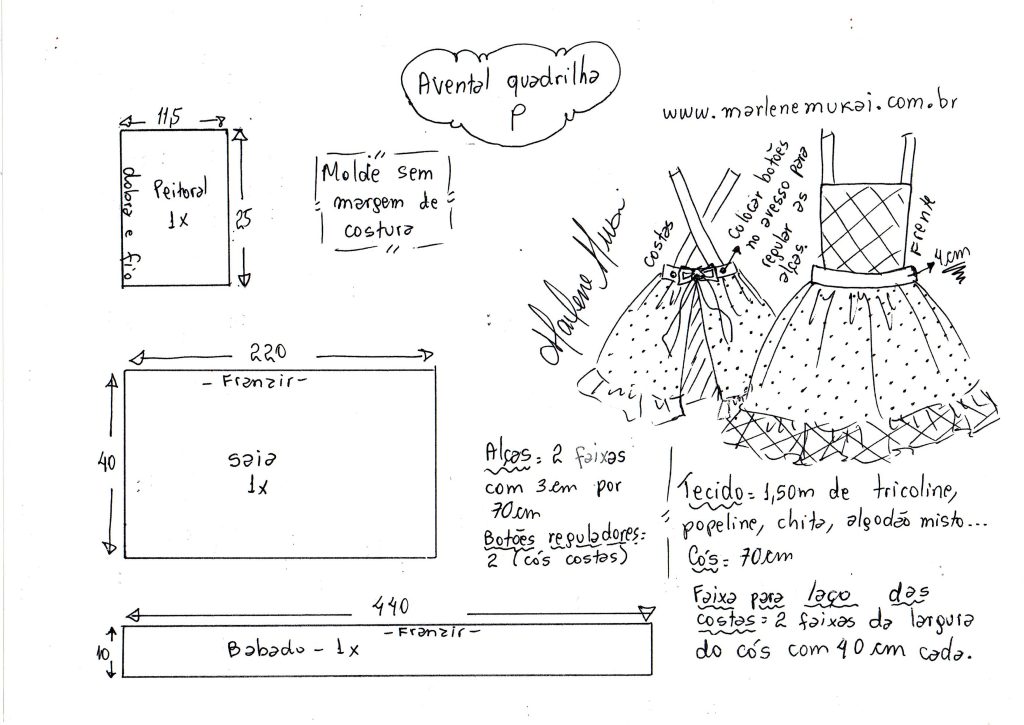 Avental quadrilha
P
www.marlenemukai.com.br
11,5
dobra e fio
Peitoral
1x
25
Molde sem
margem de
costura
Marlene Mukai
costas
colocar botões
no avesso para
regular as
alças.
Frente
4cm
220
- Franzir -
40
saia
1x
Alças = 2 faixas
com 3cm por
70cm
Botões reguladores =
2 (cós costas)
Tecido = 1,50m de tricoline,
popeline, chita, algodão misto...
Cós = 70cm
Faixa para laço das
costas = 2 faixas da largura
do cós com 40cm cada.
440
- Franzir -
10
Babado - 1x